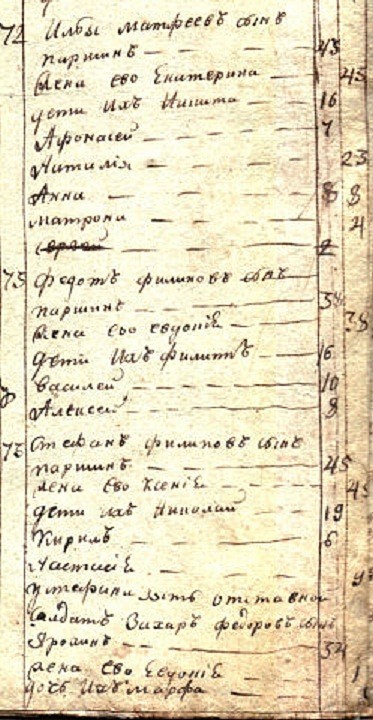 72 Илья Матфеевъ сынъ
паршинъ 43
жена ево Екатерина 45
дети ихъ Никита 16
Афонасей 7
Наталiя 23
Анна 8
матрона 4
сергей 2
73 федотъ филиповъ сынъ
паршинъ 38
жена ево евдокiѣ 38
дети ихъ филипъ 16
василей 10
Алексей 8
стефанъ филиповъ сынъ
паршинъ 45
жена ево ксенiѣ
дети ихъ николай 19
Кирилъ 6
Настасiѣ
у стефана зять отставной
салдатъ Захаръ федоровъ сынъ
Ярохинъ
жена ево Евдокiѣ
дочь ихъ марфа